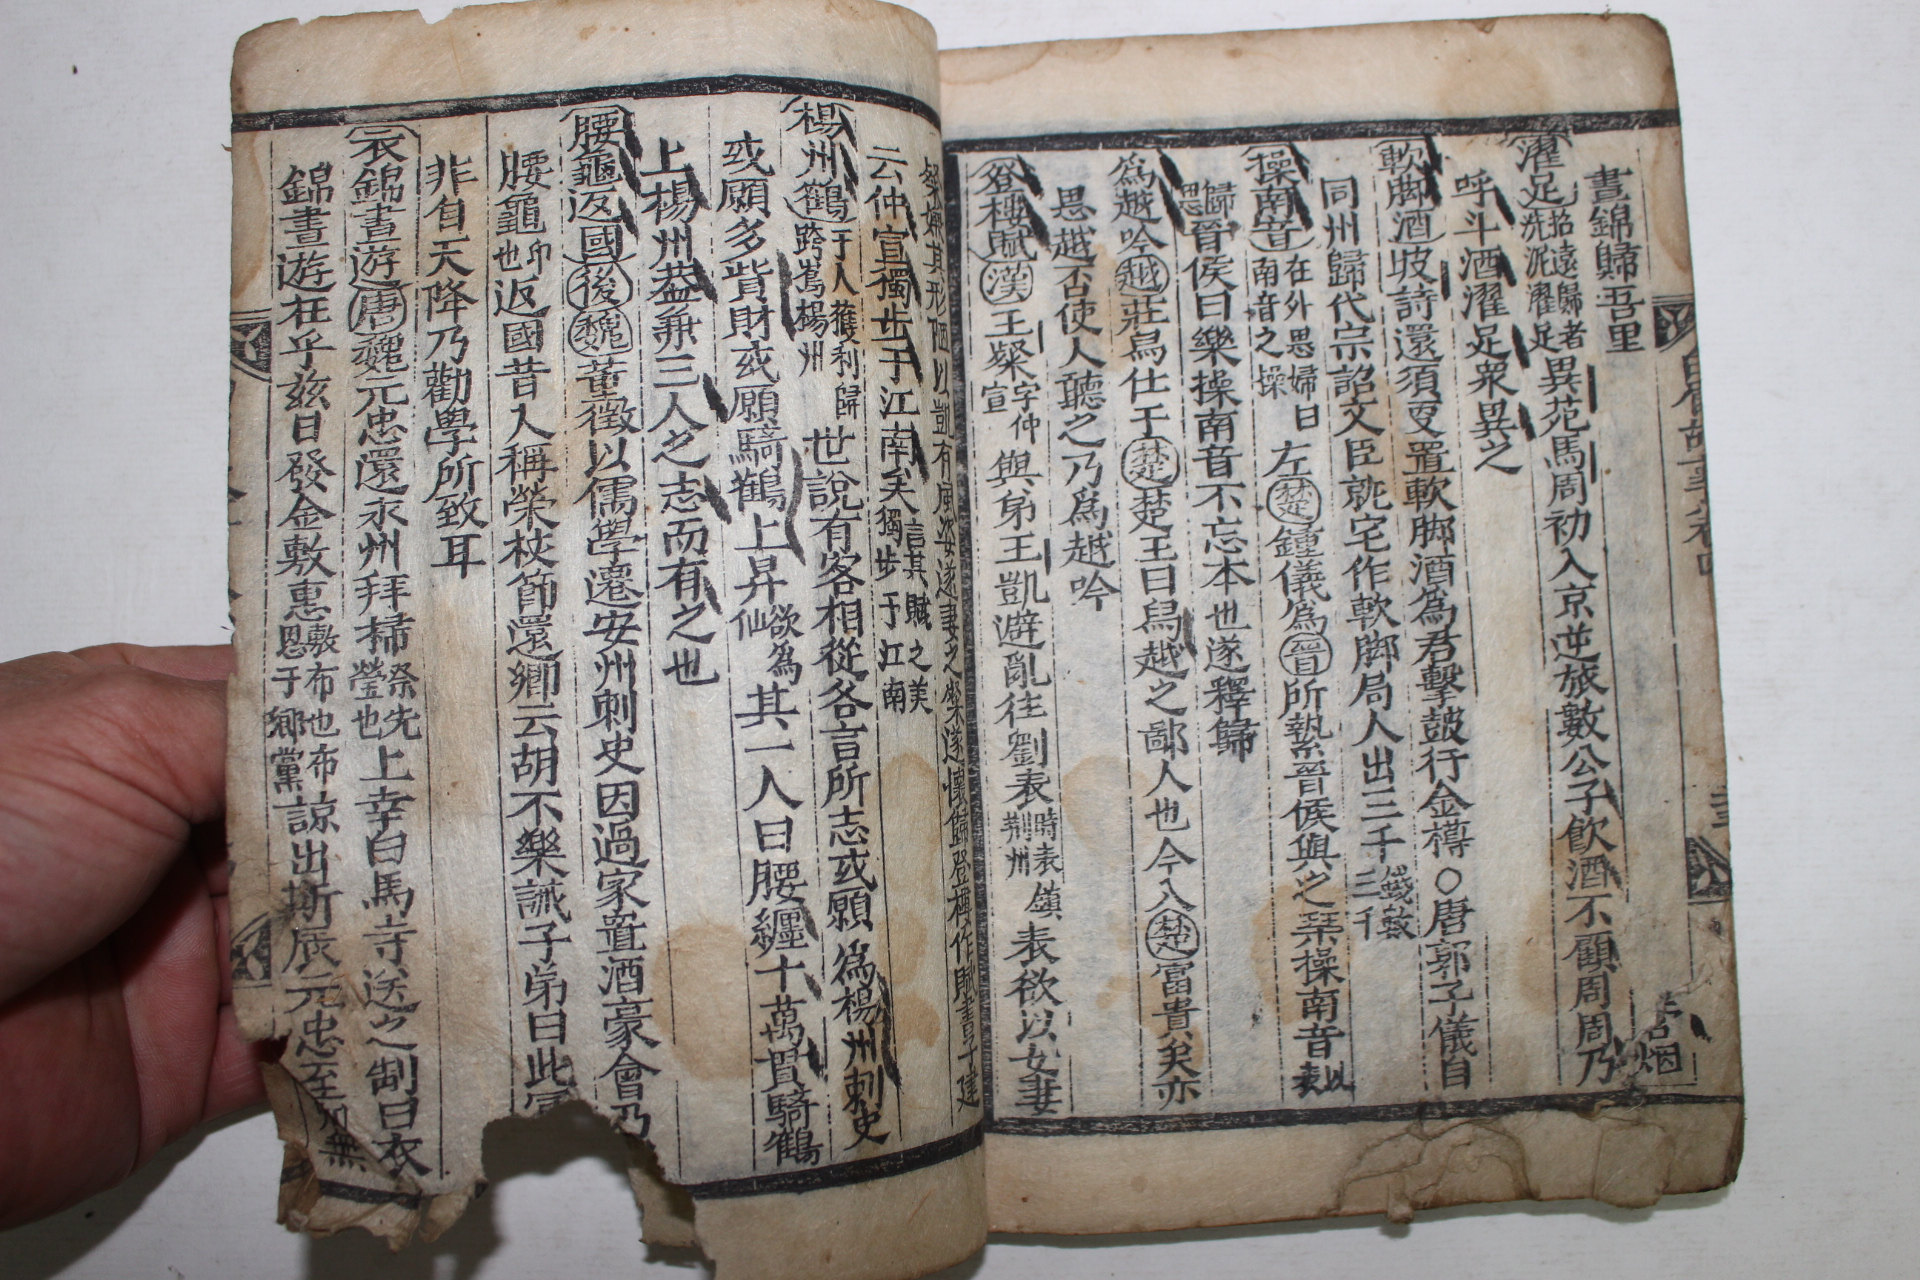 晝錦歸吾里
濯足招遠歸者先泥濯足異苑馬周初入京逆旅數公子飮酒不顧周周乃
呼斗酒濯足衆異之
軟脚酒坡詩還須更置軟脚酒爲君擊鼓行金樽○唐郭子儀自
同州歸代宗詔文臣就宅作軟脚局人出三千錢數三千
操南音在外思婦曰南音之操左楚鍾儀爲晉所縶晉侯與之琴操南音以表
歸思晉侯曰樂操南音不忘本也遂釋歸
爲越吟越莊舃仕于楚楚王曰舃越之鄙人也今入楚富貴矣亦
思越否使人聽之乃爲越吟
登樓賦漢王粲字仲宣與弟王凱避亂往劉表時表鎭荆州表欲以女妻
粲嫌其形陋以凱有風姿遂妻之粲遂懷歸登樓作賦曹子建
云仲宣獨步于江南矣言其賦之美獨步于江南
楊州鶴于人獲利歸跨鶴楊州世說有客相從各言所志或願爲楊州刺史
或願多貲財或願騎鶴上昇欲爲仙其一人曰腰纏十萬貫騎鶴
上楊州葢兼三人之志而有之也
腰龜返國後魏董徵以儒學遷安州刺史因過家置酒豪會乃
腰龜印也返國昔人稱榮杖節還鄉云胡不樂誡子弟曰此
非自天降乃勸學所致耳
衣錦晝游唐魏元忠還永州拜掃祭先瑩也上幸白馬寺送之制曰衣
錦晝遊在乎茲日發金敷惠敷布也布恩于鄉黨諒出斯辰元忠至 無